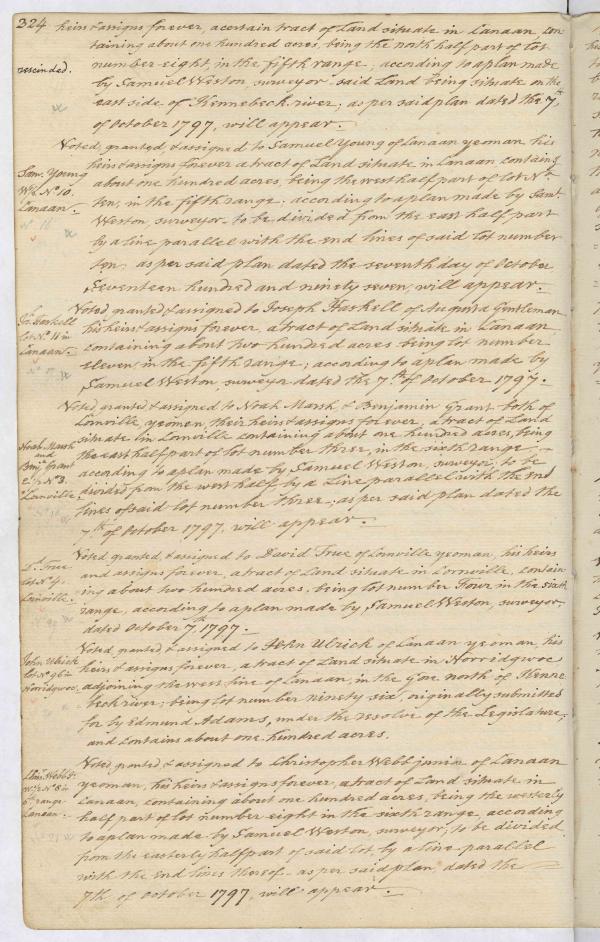 324
heirs & assigns forever, a certain tract of Land situate in Canaan, con
taining about one hundred acres, being the north half part of lot
number eight, in the fifth range; according to a plan made
rescinded.
by Samuel Weston, surveyor said Land being situate on the
east side of Kennebeck river; as per said plan dated the 7th
of October 1797, will appear.
Voted, granted, & assigned to Samuel Young of Canaan yeoman his
heirs & assigns forever a tract of Land situate in Canaan containg
Sam. Young
W½ No 10.
Canaan
about one hundred acres, being the west half part of lot No
ten, in the fifth range; according to a plan made by Saml
Weston, surveyor, to be divided from the east half part
by a line parallel with the end lines of said lot number
ten; as per said plan dated the seventh day of October
seventeen hundred and ninety seven, will appear.
Voted granted & assigned to Joseph Haskell of Augusta Gentleman
Jo. Haskell
lot No 11 in
Canaan
his heirs & assigns forever, a tract of Land situate in Canaan
containing about two hundred acres being lot number
eleven, in the fifth range; according to a plan made by
Samuel Weston, surveyor dated the 7th of October 1797.
Voted, granted & assigned to Noah Marsh & Benjamin Grant both of
Cornville, yeomen, their heirs & assigns forever, a tract of Land
situate in Cornville containing about one hundred acres, being
Noah Marsh
and
Benj. Grant
E ½ No 3.
Cornville
the east half part of lot number three, in the sixth range
according to a plan made by Samuel Weston, surveyor; to be
divided from the west half, by a Line parallel with the end
lines of said lot number three; as per said plan dated the
7th of October 1797, will appear.
Voted granted, & assigned to David True of Cornville yeoman, his heirs
D. True
lot No 4.
Cornville.
and assigns forever, a tract of Land situate in Cornville, contain
ing about two hundred acres, being lot number Four in the sixth
range, according to a plan made by Samuel Weston, surveyor
dated October 7th 1797.
Voted, granted & assigned to John Ulrick of Canaan yeoman, his
John Ulrick
lot No 96 in
Norridgwoc
heirs & assigns forever, a tract of Land situate in Norridgwoc
adjoining the west line of Canaan, in the Gore north of Kenne
beck river; being lot number ninety six, originally submitted
for by Edmund Adams, under the resolve of the Legislature;
and contains about one hundred acres.
Voted, granted & assigned to Christopher Webb junior of Canaan
Webb
W½ No 8 in
6th range
Canaan
yeoman, his heirs & assigns forever, a tract of Land situate in
Canaan, containing about one hundred acres, being the westerly
half part of lot number eight in the sixth range, according
to a plan made by Samuel Weston, surveyor, to be divided
from the easterly half part of said lot, by a line parallel
with the end lines thereof as per said plan, dated the
7th of October 1797, will appear.